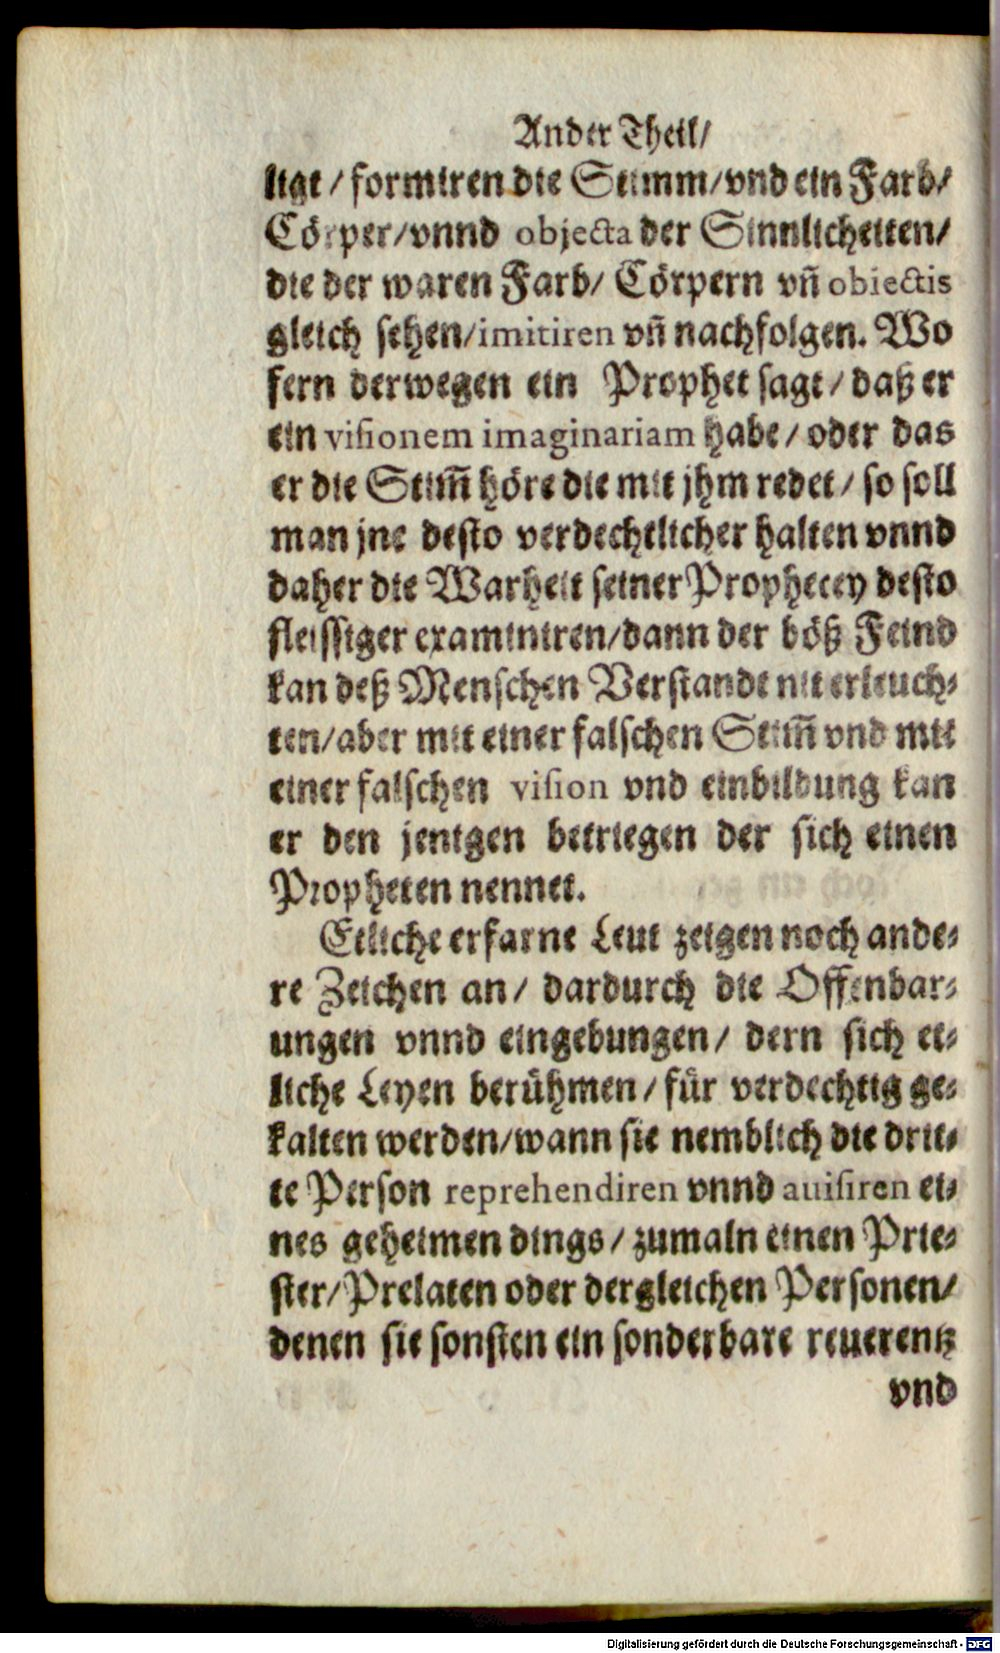 Ander Theil/
ligt / formiren die Stimm/vnd ein Farb/
Cörper/vnnd objecta der Sinnlicheiten/
die der waren Farb/ Cörpern vn̄ obiectis
gleich sehen/imitiren vn̄ nachfolgen. Wo
fern derwegen ein Prophet sagt / daß er
ein visionem imaginariam habe / oder das
er die Stim̄ höre die mit jhm redet / so soll
man jne desto verdechtlicher halten vnnd
daher die Warheit seiner Prophecey desto
fleissiger examiniren/dann der böß Feind
kan deß Menschen Verstandt nit erleuch-
ten/aber mit einer falschen Stim̄ vnd mit
einer falschen vision vnd einbildung kan
er den jenigen betriegen der sich einen
Propheten nennet.
Etliche erfarne Leut zeigen noch ande-
re Zeichen an / dardurch die Offenbar-
ungen vnnd eingebungen / dern sich et-
liche Leyen berühmen / für verdechtig ge-
kalten werden/wann sie nemblich die drit-
te Person reprehendiren vnnd auisiren ei-
nes geheimen dings / zumaln einen Prie-
ster/Prelaten oder dergleichen Personen/
denen sie sonsten ein sonderbare reuerentz
vnd
Digitalisierung gefördert durch die Deutsche Forschungsgemeinschaft - DFG